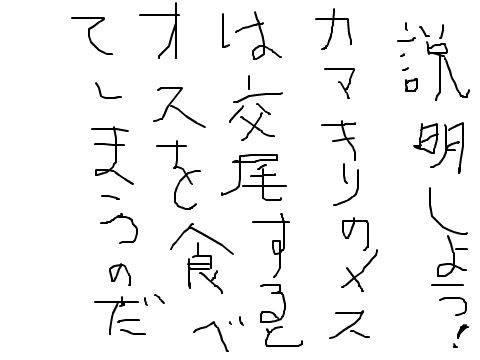 説明しよう!
カマきりのメス
は交尾すると
オスを食べ
てしまうのだ